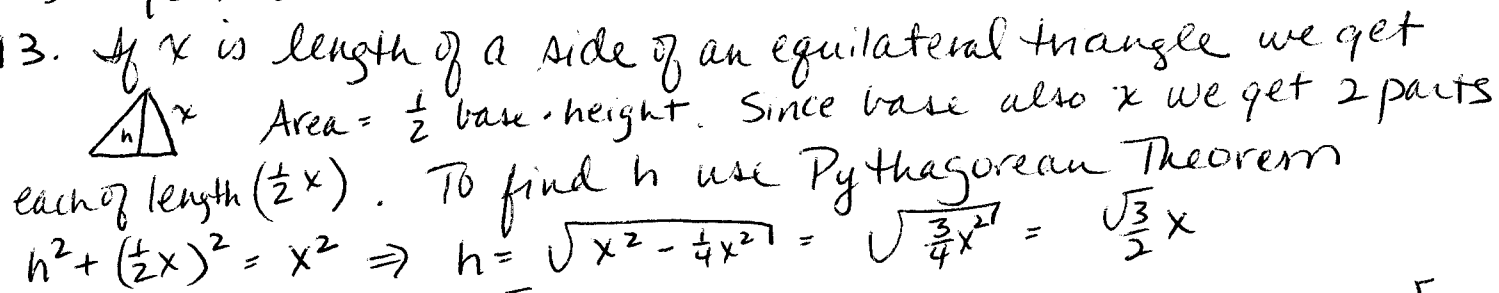 13. If x is length of a side of an equilateral triangle we get
h x Area = ½ base · height. Since base also x we get 2 parts
each of length (½x). To find h use Pythagorean Theorem
h² + (½x)² = x² ⇒ h = √(x² - ¼x²) = √(¾x²) = √3/2 x